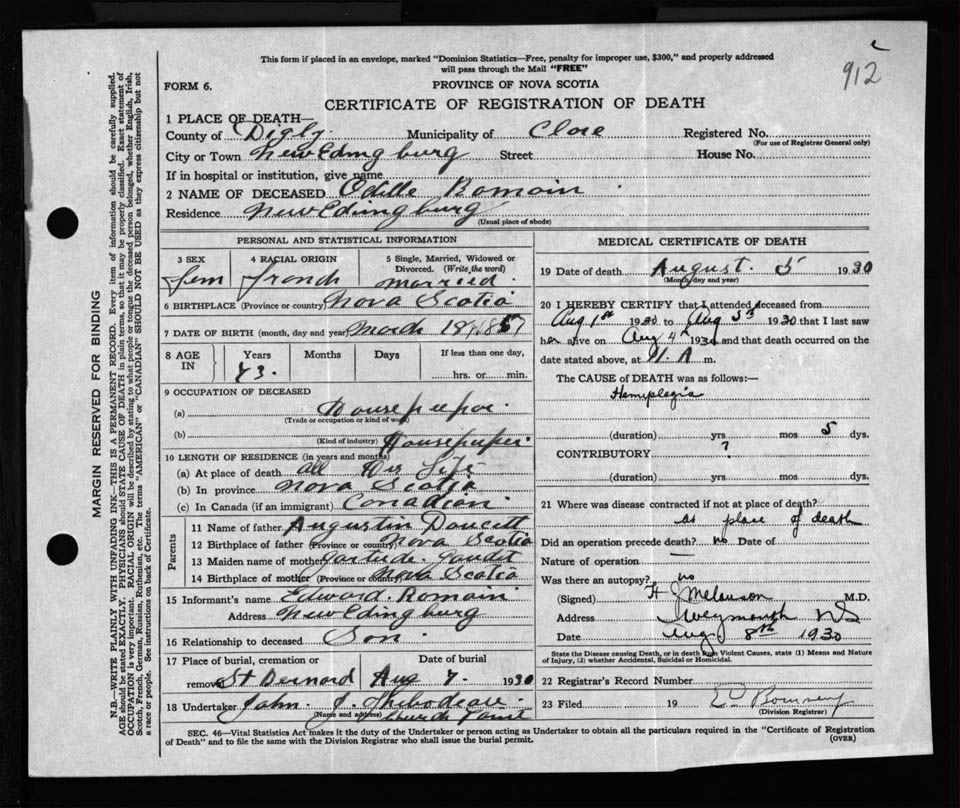 912
This form if placed in an envelope, marked "Dominion Statistics—Free, penalty for improper use, $300," and properly addressed
will pass through the Mail "FREE"
FORM 6.
PROVINCE OF NOVA SCOTIA
CERTIFICATE OF REGISTRATION OF DEATH
1 PLACE OF DEATH—
County of Digby Municipality of Clare Registered No.
(For use of Registrar General only)
City or Town New Edingburg Street House No.
If in hospital or institution, give name
2 NAME OF DECEASED Odille Romain
Residence New Edingburg
(Usual place of abode)
PERSONAL AND STATISTICAL INFORMATION
3 SEX 4 RACIAL ORIGIN 5 Single, Married, Widowed or
Divorced. (Write the word)
Fem French married
6 BIRTHPLACE (Province or country) Nova Scotia
7 DATE OF BIRTH (month, day and year) March 18, 1857
8 AGE IN Years Months Days If less than one day,
73. hrs. or min.
9 OCCUPATION OF DECEASED
(a) Housekeeper
(Trade or occupation or kind of work)
(b) Housekeeper
(Kind of industry)
10 LENGTH OF RESIDENCE (in years and months)
(a) At place of death All Her Life
(b) In province Nova Scotia
(c) In Canada (if an immigrant) Canadian
Parents
11 Name of father Augustin Doucett
12 Birthplace of father (Province or country) Nova Scotia
13 Maiden name of mother Gaudet
14 Birthplace of mother (Province or country) Nova Scotia
15 Informant's name Edward Romain
Address New Edingburg
16 Relationship to deceased Son
17 Place of burial, cremation or Date of burial
removal St Bernard Aug 7. 1930
18 Undertaker John J. Thibodeau
(Name and address) Church Point
MEDICAL CERTIFICATE OF DEATH
19 Date of death August 5 1930
(Month, day and year)
20 I HEREBY CERTIFY that I attended deceased from
Aug 1st 1930 to Aug 5th 1930 that I last saw
her alive on Aug 4th 1930 and that death occurred on the
date stated above, at A m.
The CAUSE OF DEATH was as follows:—
Hemiplegia
(duration) yrs mos 5 dys.
CONTRIBUTORY ?
(duration) yrs. mos. dys.
21 Where was disease contracted if not at place of death?
at place of death
Did an operation precede death? no Date of
Nature of operation —
Was there an autopsy? no
(Signed) H Melanson M.D.
Address Weymouth NS
Date Aug 8th 1930
State the Disease causing Death, or in death from Violent Causes, state (1) Means and Nature
of Injury, (2) whether Accidental, Suicidal or Homicidal.
22 Registrar's Record Number
23 Filed 19
(Division Registrar)
SEC. 46—Vital Statistics Act makes it the duty of the Undertaker or person acting as Undertaker to obtain all the particulars required in the "Certificate of Registration
of Death" and to file the same with the Division Registrar who shall issue the burial permit.
(OVER)
MARGIN RESERVED FOR BINDING
N.B.—WRITE PLAINLY WITH UNFADING INK—THIS IS A PERMANENT RECORD. Every item of information should be carefully supplied.
AGE should be stated EXACTLY. PHYSICIANS should STATE CAUSE OF DEATH in plain terms, so that it may be properly classified. Exact statement of
OCCUPATION is very important. RACIAL ORIGIN will be described by stating to what people or tongue the deceased person belonged, whether English, Irish,
Scotch, French, German, Russian, Ruthenian, etc. The terms "AMERICAN" or "CANADIAN" SHOULD NOT BE USED as they express citizenship but not
a race or people. See instructions on back of Certificate.